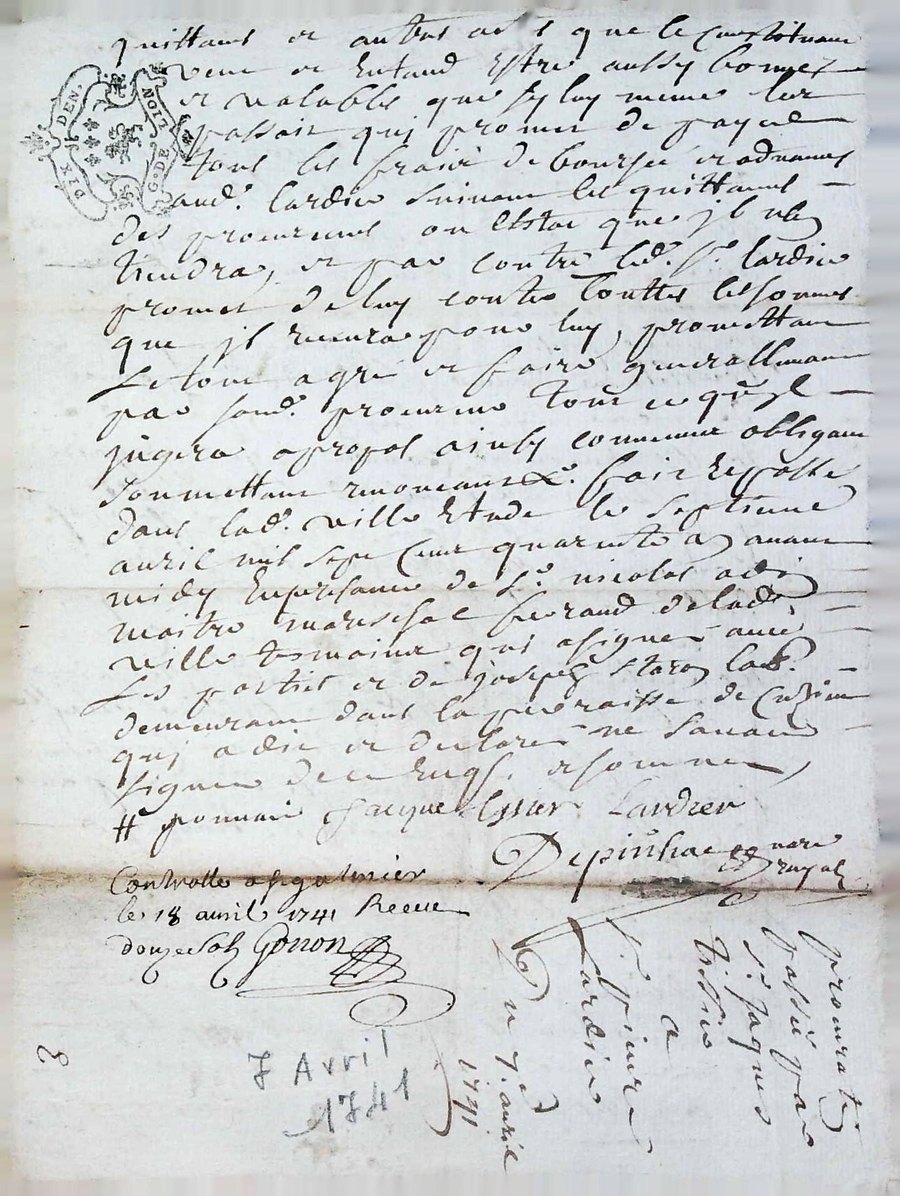 quittans et autres actes que le constituant
veut et Entand Estre aussy bonnes
et valables que sy luy meme les
passoit qui promet de payer
tous les frais de bourse et advances
aud. Lardier suivant les quittances
des procureurs ou l'Estat que jl
tiendra, et par contre led. Sr. Lardier
promet de luy conter touttes les sommes
que jl recevra pour luy, promettant
Le tout agréé et faire generallement
par sond. procureur tout ce qu'jl
jugera apropos ainsy convenu obligant
soumettant renonceant &. fait Et passé
dans lad. ville Etude le septieme
avril mil sept cent quarante avant
midy En presance de Sr. nicolas
maitre mareschal ferrand de lad.
ville temoins qui a signé avec
Les parties et de joseph
demeurant dans la parroisse de
qui a dit et declaré ne scavoir
signer de ce Enqs. et sommé
Jacque tissier Lardier
Depinhac nore
royal
DIX DEN.
G. DE LION
Controlle a st galmier
le 18 avril 1741 Receu
douze sols Gonon
7 Avril
1741
procuration
passée par
sr. Jaques
tissier
a
sr. pierre
Lardier
Du 7e. avril
1741